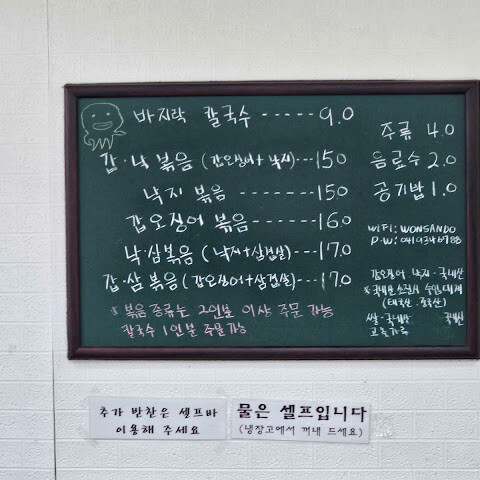 바지락 칼국수 ----- 9.0
갑·낙 볶음 (갑오징어+낙지)---15.0
낙지 볶음 ------ 15.0
갑오징어 볶음----- 16.0
낙·삼볶음 (낙지+삼겹살)---17.0
갑·삼 볶음(갑오징어+삼겹살)---17.0
※ 볶음 종류는 2인분 이상 주문 가능
칼국수 1인분 주문가능
주류 4.0
음료수 2.0
공기밥 1.0
WIFI: WONSANDO
P·W: 0419346788
갑오징어·낙지·국내산
※국내산 소진시 수입대체
(태국산·중국산)
쌀·국내산 국내산
고춧가루
추가 반찬은 셀프바
이용해 주세요
물은 셀프입니다
(냉장고에서 꺼내 드세요)